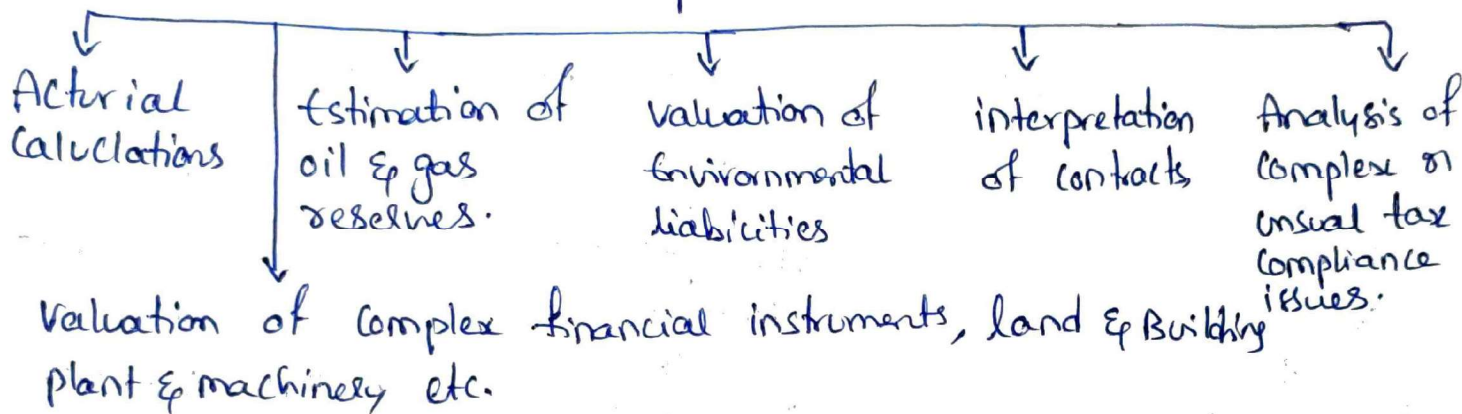 Acturial
Caluclations
Estimation of
oil & gas
reserves.
valuation of
Environmental
liabilities
interpretation
of contracts
Analysis of
Complex or
unsual tax
Compliance
issues.
Valuation of Complex financial instruments, land & Building
plant & machinery etc.